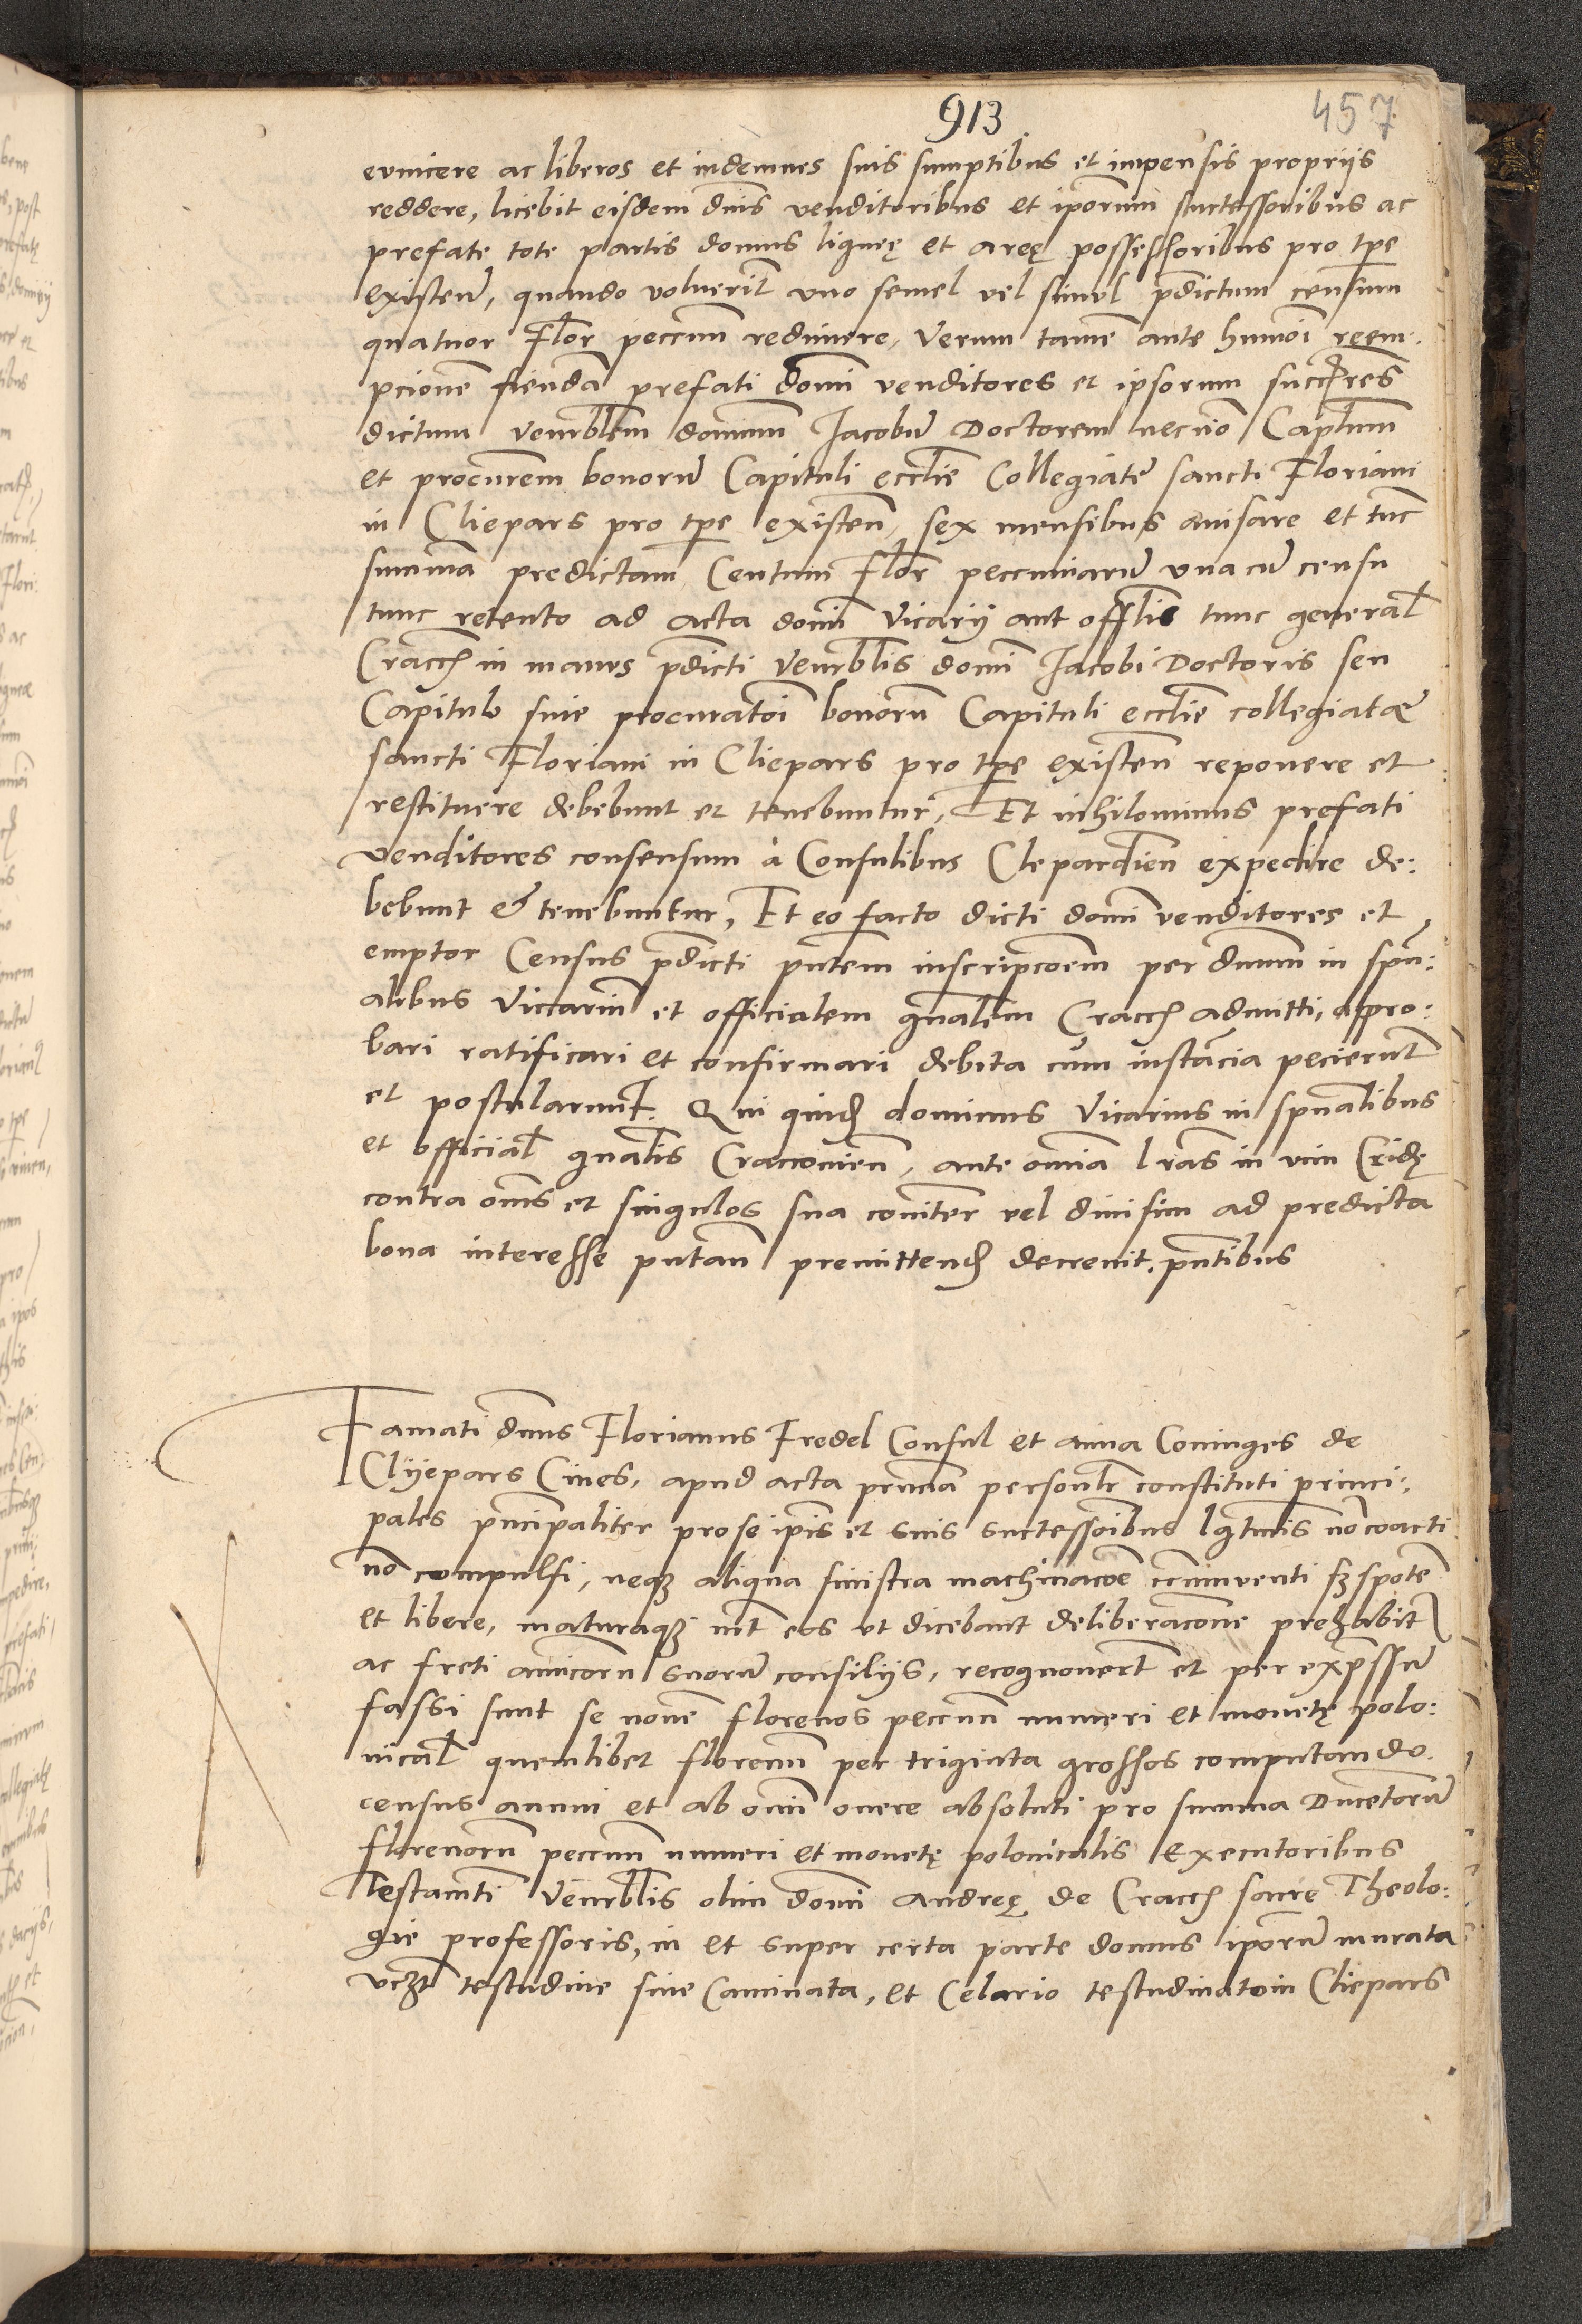 913
457
evincere ac liberos et indemnes suis sumptibus et impensis propriis
reddere, licebit eisdem dnis venditoribus et iporum successoribus ac
prefate tote partis domus ligneę et areę possessoribus pro tpe
existen, quando voluerit uno semel vel simul pdictum censum
quatuor Flor peccun redimere, Verum tamē ante humoi reem-
pcionē fiendā prefati domi venditores et ipsorum succres
dictum venerblem dominum Jacobū Doctorem necnō Caplum
et procurem bonorū Capituli ecclie Collegiate sancti Floriani
in Cliepars pro tpe existen, sex mensibus avisare et tunc
summā predictam Centum Flor peccuniarū una cū censu
tunc retento ad acta domi Vicarij aut offlis tunc general
Cracch in manus pdicti venerblis domi Jacobi Doctoris seu
Capitulo sive procuratoi bonorū Capituli ecclie collegiatæ
sancti Floriani in Cliepars pro tpe existen reponere et
restituere debebunt et tenebuntur, Et nihilominus prefati
venditores consensum à Consulibus Clepardien expedire de:
bebunt & tenebuntur, Et eo facto dicti domi venditores et
emptor Census pdicti pntem inscripcoem per dnum in spu:
alibus Viccariū et officialem gnalem Cracch admitti, appro:
bari ratificari et confirmari debita cum instācia pecierunt
et postularunt. Qui quid dominus Vicarius in spualibus
et official gnalis Craccovien, ante omnia lras in vim Cridę
contra oms et singulos sua coniter vel divisim ad predicta
bona interesse putan premittend decrevit. pntibus
Famati dnus Florianus Fredel Consul et anna Coninges de
Clijepars Cives, apud acta pnciā personlr constituti princi:
pales pncipaliter pro se ipis et suis successoibus lgtimis nō coacti
nō compulsi, neqz aliqua sinistra machinacōe circūventi sz spōte
et libere, maturaqz int eos ut dicebant deliberacone prehabit
ac freti amicorū suorū consilijs, recognovert et per expssū
fassi sunt se novē florenos peccun numeri et monetę polo:
nical quemlibet florenū per triginta grossos computando
census annui et ab omi onere absoluti pro summa Ducetorū
florenorū peccun numeri et monetę polonicalis Executoribus
Testamti Venerblis olim domi Andreę de Cracch sacrę Theolo:
gie professoris, in et super certa parte domus iporū murata
vczt testudine sive Caminata, et Celario testudinato in Cliepars